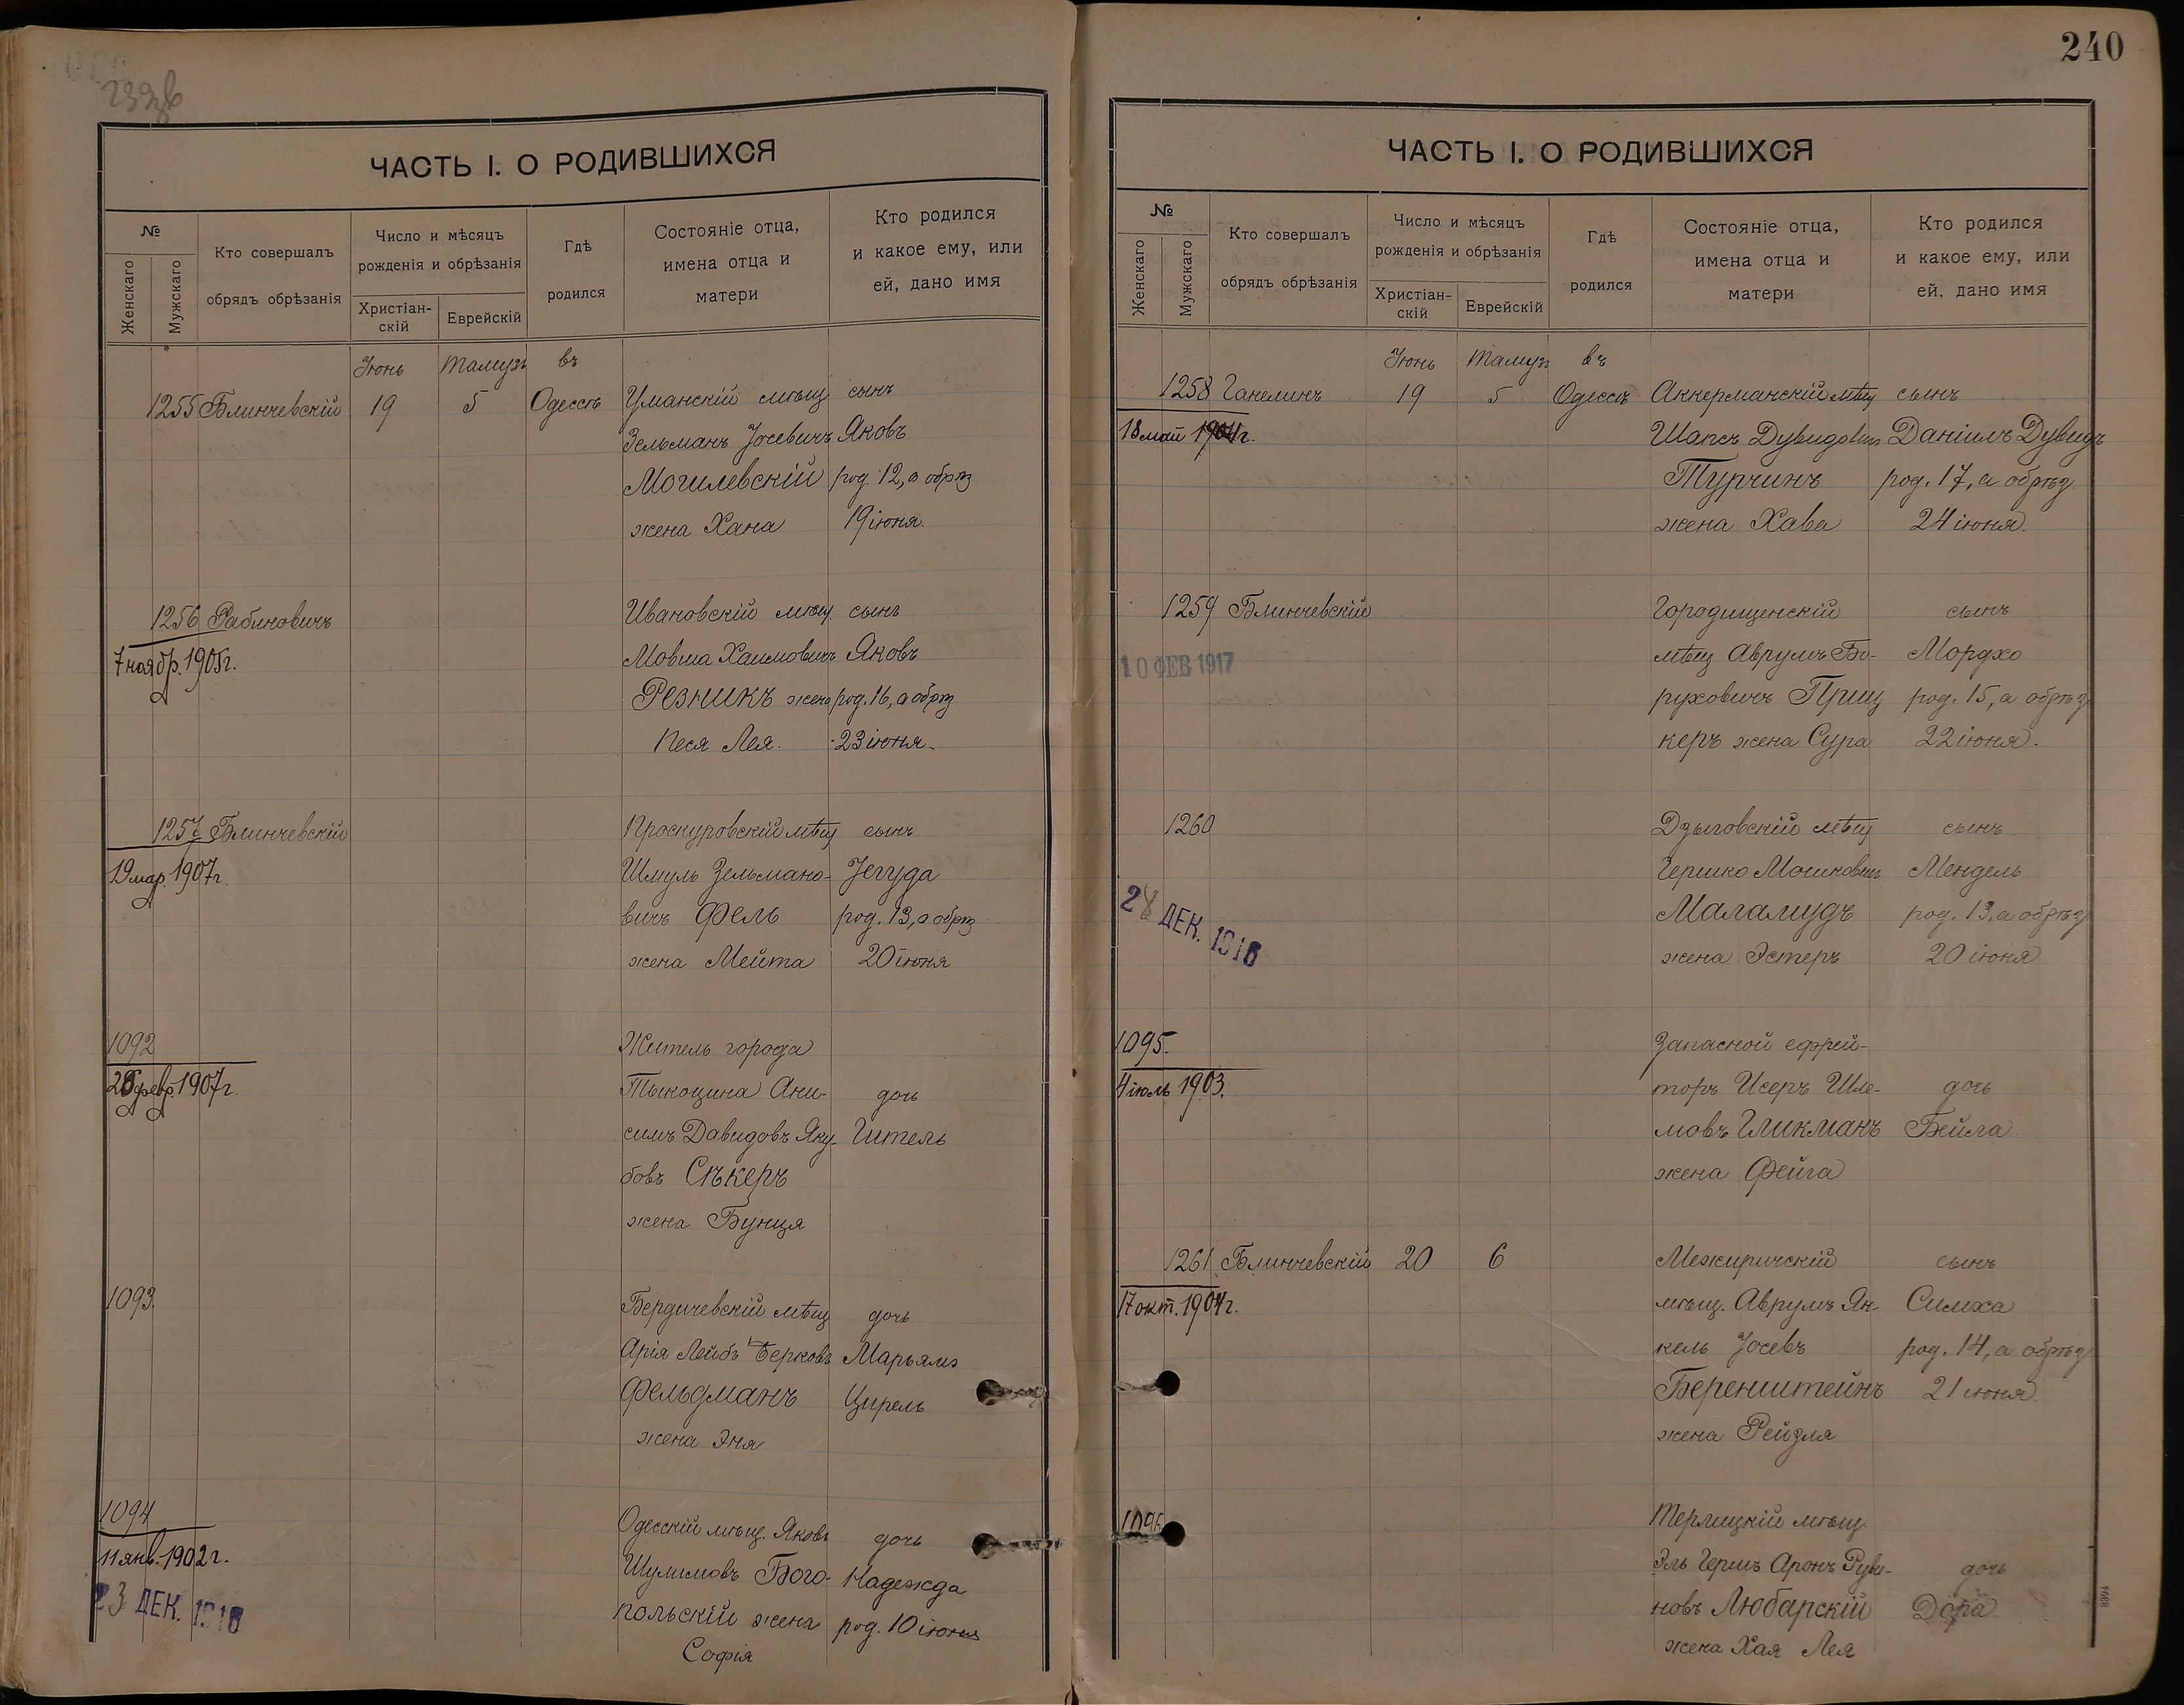 239б
ЧАСТЬ I. О РОДИВШИХСЯ
№
Женскаго
Мужскаго
Кто совершалъ
обрядъ обрѣзанія
Число и мѣсяцъ
рожденія и обрѣзанія
Христіан-
скій
Еврейскій
Гдѣ
родился
Состояніе отца,
имена отца и
матери
Кто родился
и какое ему, или
ей, дано имя
Іюнь Тамузъ въ
1255 Блинчевскій 19 5 Одессѣ Уманскій мѣщ сынъ
Зельманъ Іосевичъ Яковъ
Могилевскій род. 12, а обрѣз
жена Хана 19 іюня.
1256 Рабиновичъ Ивановскій мѣщ. сынъ
7 ноябр. 1905г. Мовша Хаимовичъ Яковъ
Резникъ жена род. 16, а обрѣз
Песя Лея. 23 іюня.
1257 Блинчевскій Проскуровскій мѣщ сынъ
19 мар. 1907г. Шмуль Зельмано- Іегуда
вичъ Фель род. 13, а обрѣз
жена Мейта 20 іюня
1092 Житель города
февр. 1907г. Тыкоцина Ани- дочь
симъ Давидовъ Яку- Гитель
бовъ Сѣкеръ
жена Бунця
1093. Бердичевскій мѣщ дочь
Арія Лейбъ Берковъ Марьямъ
Фельдманъ Цирель
жена Эня
1094 Одесскій мѣщ. Яковъ дочь
11 янв. 1902г. Шулимовъ Бого- Надежда
23 ДЕК. 1916 польскій жена род. 10 іюня
Софія
240
ЧАСТЬ I. О РОДИВШИХСЯ
№
Женскаго
Мужскаго
Кто совершалъ
обрядъ обрѣзанія
Число и мѣсяцъ
рожденія и обрѣзанія
Христіан-
скій
Еврейскій
Гдѣ
родился
Состояніе отца,
имена отца и
матери
Кто родился
и какое ему, или
ей, дано имя
Іюнь Тамузъ въ
1258 Ганелинъ 19 5 Одессѣ Аккерманскій мѣщ сынъ
18 май 1904г. Шапсъ Дувидовичъ Даніилъ Дувидъ
Турчинъ род. 17, а обрѣз
жена Хава 24 іюня.
1259 Блинчевскій Городищенскій сынъ
10 ФЕВ 1917 мѣщ Аврумъ Бо- Мордхо
руховичъ Приц род. 15, а обрѣз
керъ жена Сура 22 іюня.
1260 Дзыговскій мѣщ сынъ
28 ДЕК. 1916 Гершко Мошковичъ Мендель
Маламудъ род. 13, а обрѣз
жена Эстеръ 20 іюня
1095. Запасной ефрей-
4 іюль 1903. торъ Исеръ Шле- дочь
мовъ Гликманъ Бейла
жена Фейга
1261 Блинчевскій 20 6 Межиричскій сынъ
17 окт. 1904г. мѣщ. Аврумъ Ян- Симха
кель Іосевъ род. 14, а обрѣз
Беренштейнъ 21 іюня.
жена Рейзля
1096 Терлицкій мѣщ
Эль Гершъ Аронъ Руви- дочь
новъ Любарскій Дора
жена Хая Лея